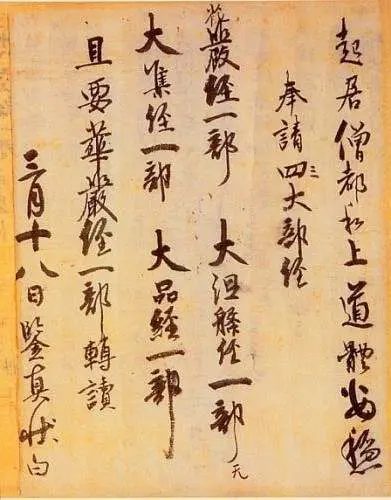 起居僧都和上道體安穩
奉請四三大部経
花嚴経一部　大涅槃経一部
大集経一部　大品経一部
且要華嚴経一部轉讀
三月十八日鑒真状白